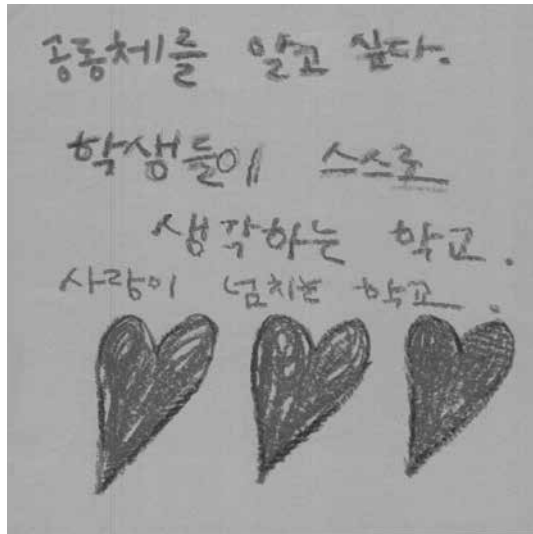 공동체를 알고 싶다.
학생들이 스스로
생각하는 학교.
사랑이 넘치는 학교.